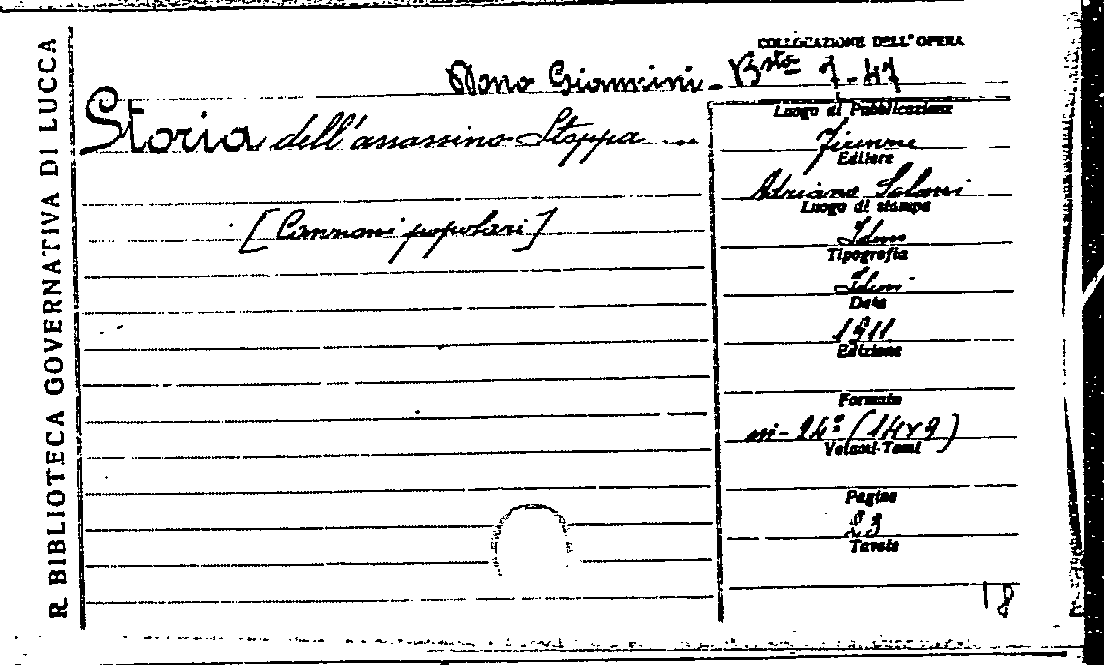 R. BIBLIOTECA GOVERNATIVA DI LUCCA
COLLOCAZIONE DELL'OPERA
Dono Giannini - Bsta 7-47
Storia dell'assassino Stoppa ...
[Canzoni popolari]
Luogo di Pubblicazione
Firenze
Editore
Adriano Salani
Luogo di stampa
Idem
Tipografia
Idem
Data
1911
Edizione
Formato
in-24° (14x9)
Volumi-Tomi
Pagine
23
Tavole
18